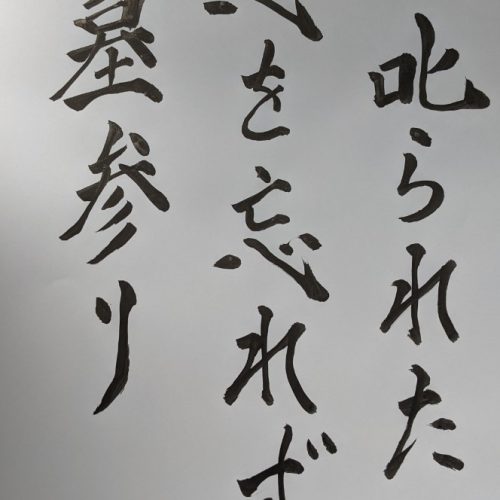 叱られた
を忘れず
墓参り